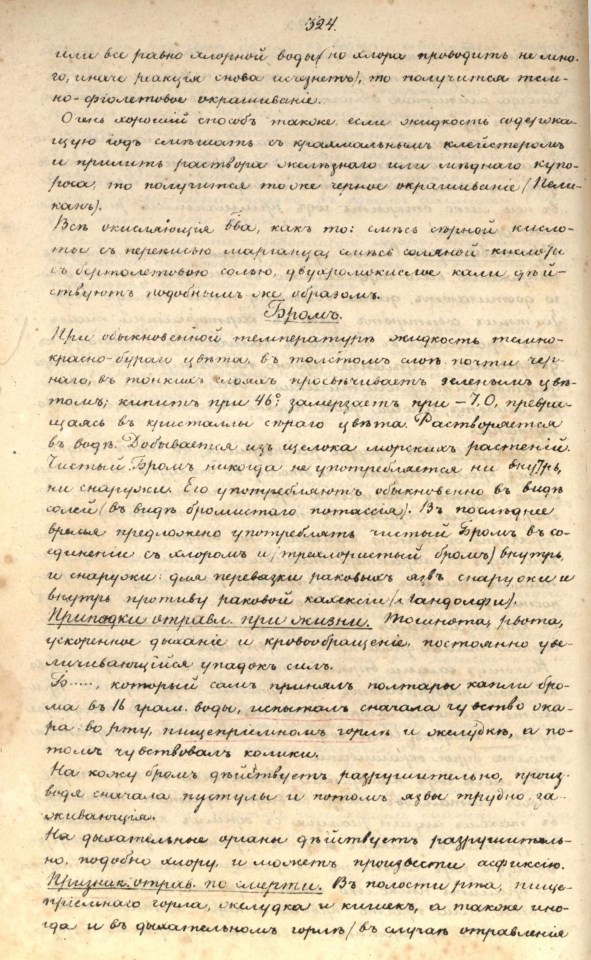 324.
или все равно хлорной воды (но хлора проводить не мно-
го, иначе реакція снова исчезнетъ), то получится тем-
но-фіолетовое окрашиваніе.
Очень хорошій способъ также если жидкость содержа-
щую іодъ смѣшать съ крахмальнымъ клейстеромъ
и прилить раствора желѣзнаго или мѣднаго купо-
роса, то получится тоже черное окрашиваніе (Пели-
канъ).
Всѣ окисляющія в̃ва, какъ то: смѣсь сѣрной кисло-
ты съ перекисью марганца, смѣсь соляной кислоты
съ бертолетовою солью, двухромокислое кали дѣй-
ствуютъ подобнымъ же образомъ.
Бромъ.
При обыкновенной температурѣ жидкость темно-
красно-бураго цвѣта, въ толстомъ слоѣ почти чер-
наго, въ тонкихъ слояхъ просвѣчиваетъ зеленымъ цвѣ-
томъ; кипитъ при 46°. замерзаетъ при -7.0, превра-
щаясь въ кристаллы сѣраго цвѣта. Растворяется
въ водѣ. Добывается изъ щелока морскихъ растеній.
Чистый Бромъ никогда не употребляется ни внутрь,
ни снаружи. Его употребляютъ обыкновенно въ видѣ
солей (въ видѣ бромистаго потассія). Въ послѣднее
время предложено употреблять чистый Бромъ въ со-
единеніи съ хлоромъ и (треххлористый бромъ) внутрь
и снаружи: для перевязки раковыхъ язвъ снаружи и
внутрь противу раковой кахексіи (Ландольфи).
Припадки отравл. при жизни. Тошнота, рвота,
ускоренное дыханіе и кровообращеніе, постоянно уве-
личивающійся упадокъ силъ.
Б....., который самъ принялъ полтары капли бро-
ма въ 16 грам. воды, испыталъ сначала чувство жа-
ра во рту, пищепріемномъ горлѣ и желудкѣ, а по-
томъ чувствовалъ колики.
На кожу бромъ дѣйствуетъ разрушительно, произ-
водя сначала пустулы и потомъ язвы трудно за-
живающія.
На дыхательные органы дѣйствуетъ разрушитель-
но, подобно хлору, и можетъ произвести асфиксію.
Признак. отрав. по смерти. Въ полости рта, пище-
пріемнаго горла, желудка и кишекъ, а также ино-
гда и въ дыхательномъ горлѣ (въ случаѣ отравленія